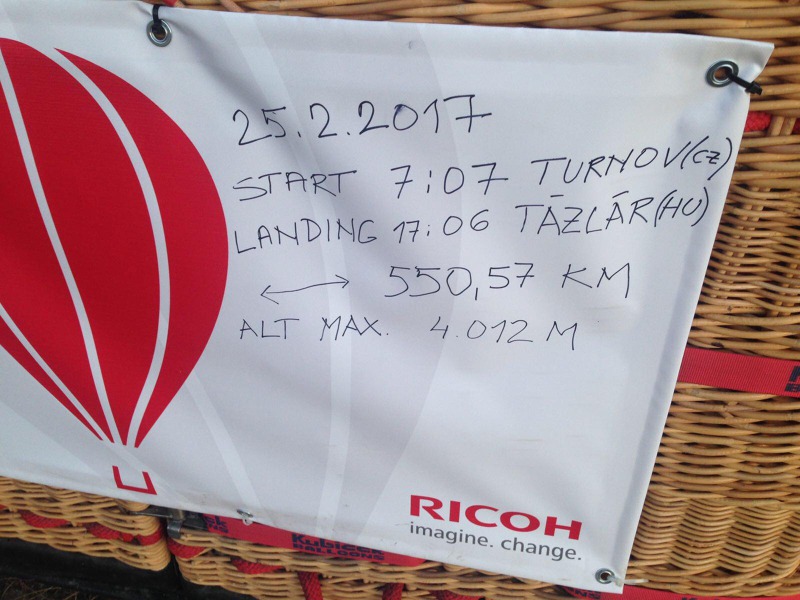 25.2.2017
START 7:07 TURNOV(CZ)
LANDING 17:06 TÁZLÁR(HU)
550,57 KM
ALT MAX. 4.012 M
RICOH
imagine. change.
Kubicek
BALLOONS